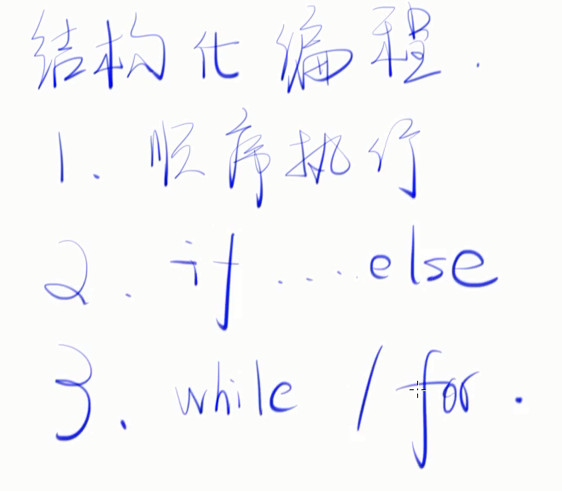 结构化编程.
1. 顺序执行
2. if ....else
3. while / for.